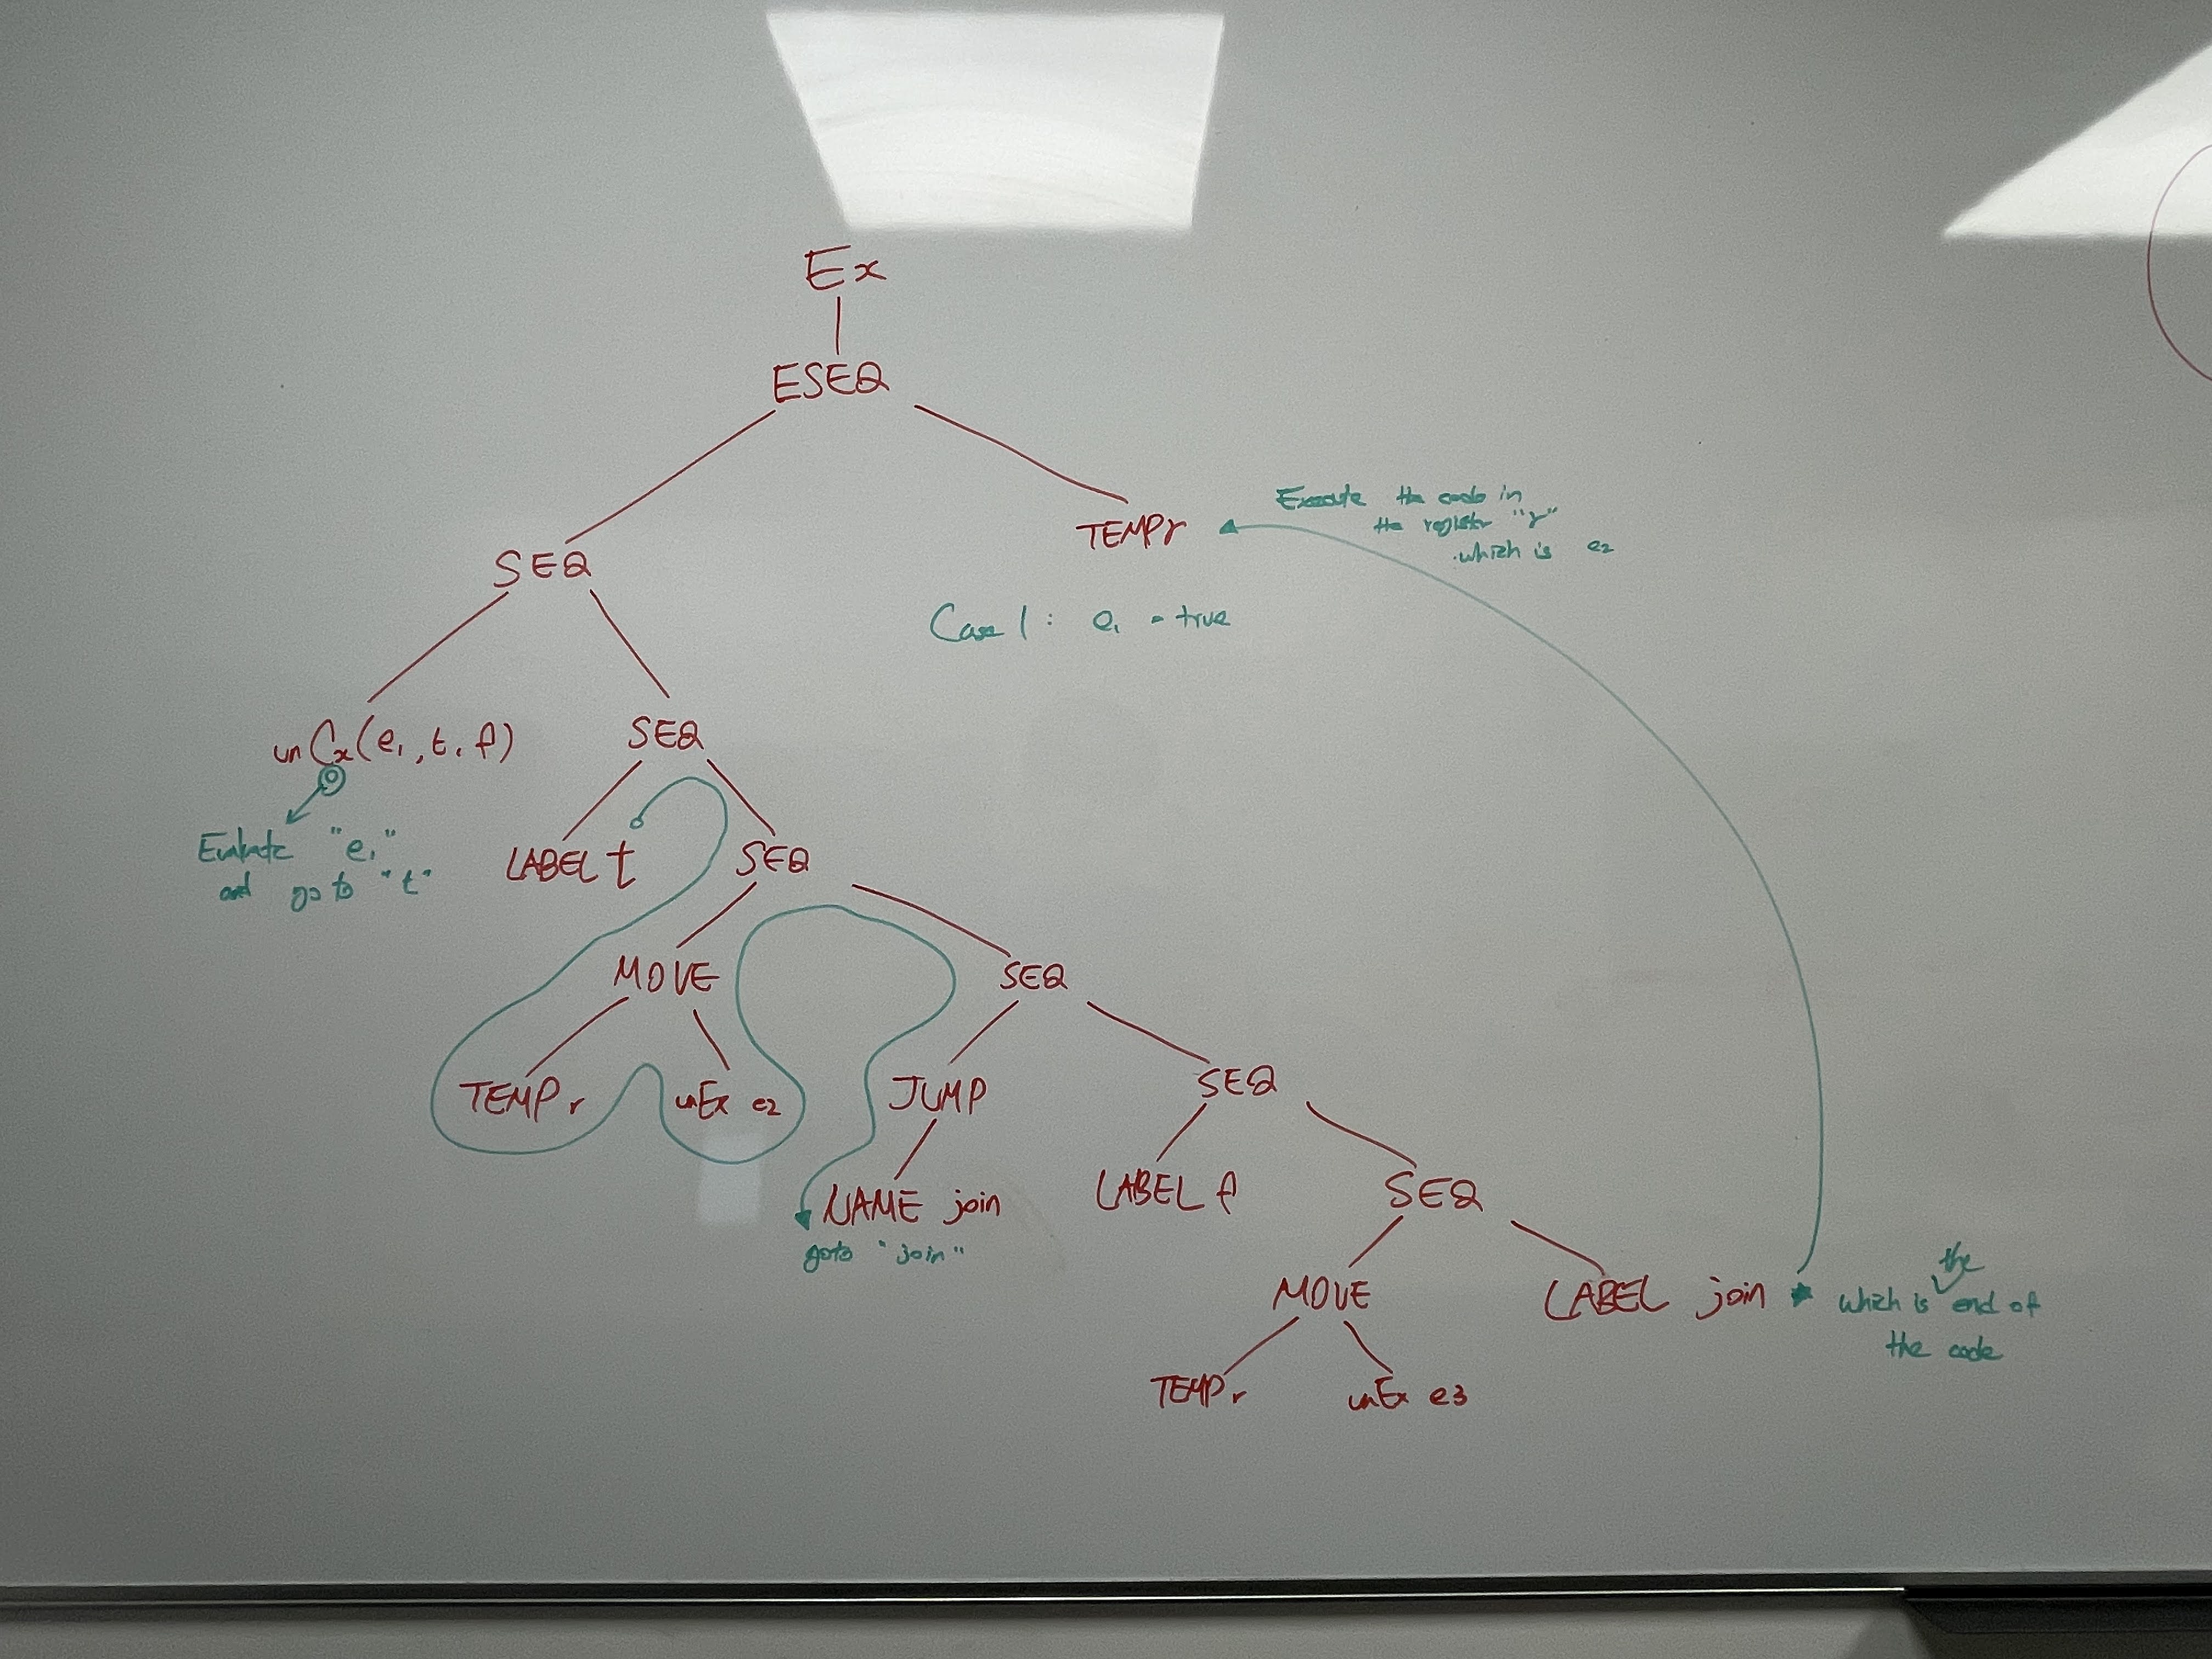 Ex
ESEQ
SEQ
TEMP r
Execute the code in
the register "r"
which is e2
Case 1: e1 = true
unCx(e1, t, f)
SEQ
Evaluate "e1"
and go to "t"
LABEL t
SEQ
MOVE
SEQ
TEMP r
unEx e2
JUMP
SEQ
NAME join
goto "join"
LABEL f
SEQ
MOVE
LABEL join
which is the end of
the code
TEMP r
unEx e3